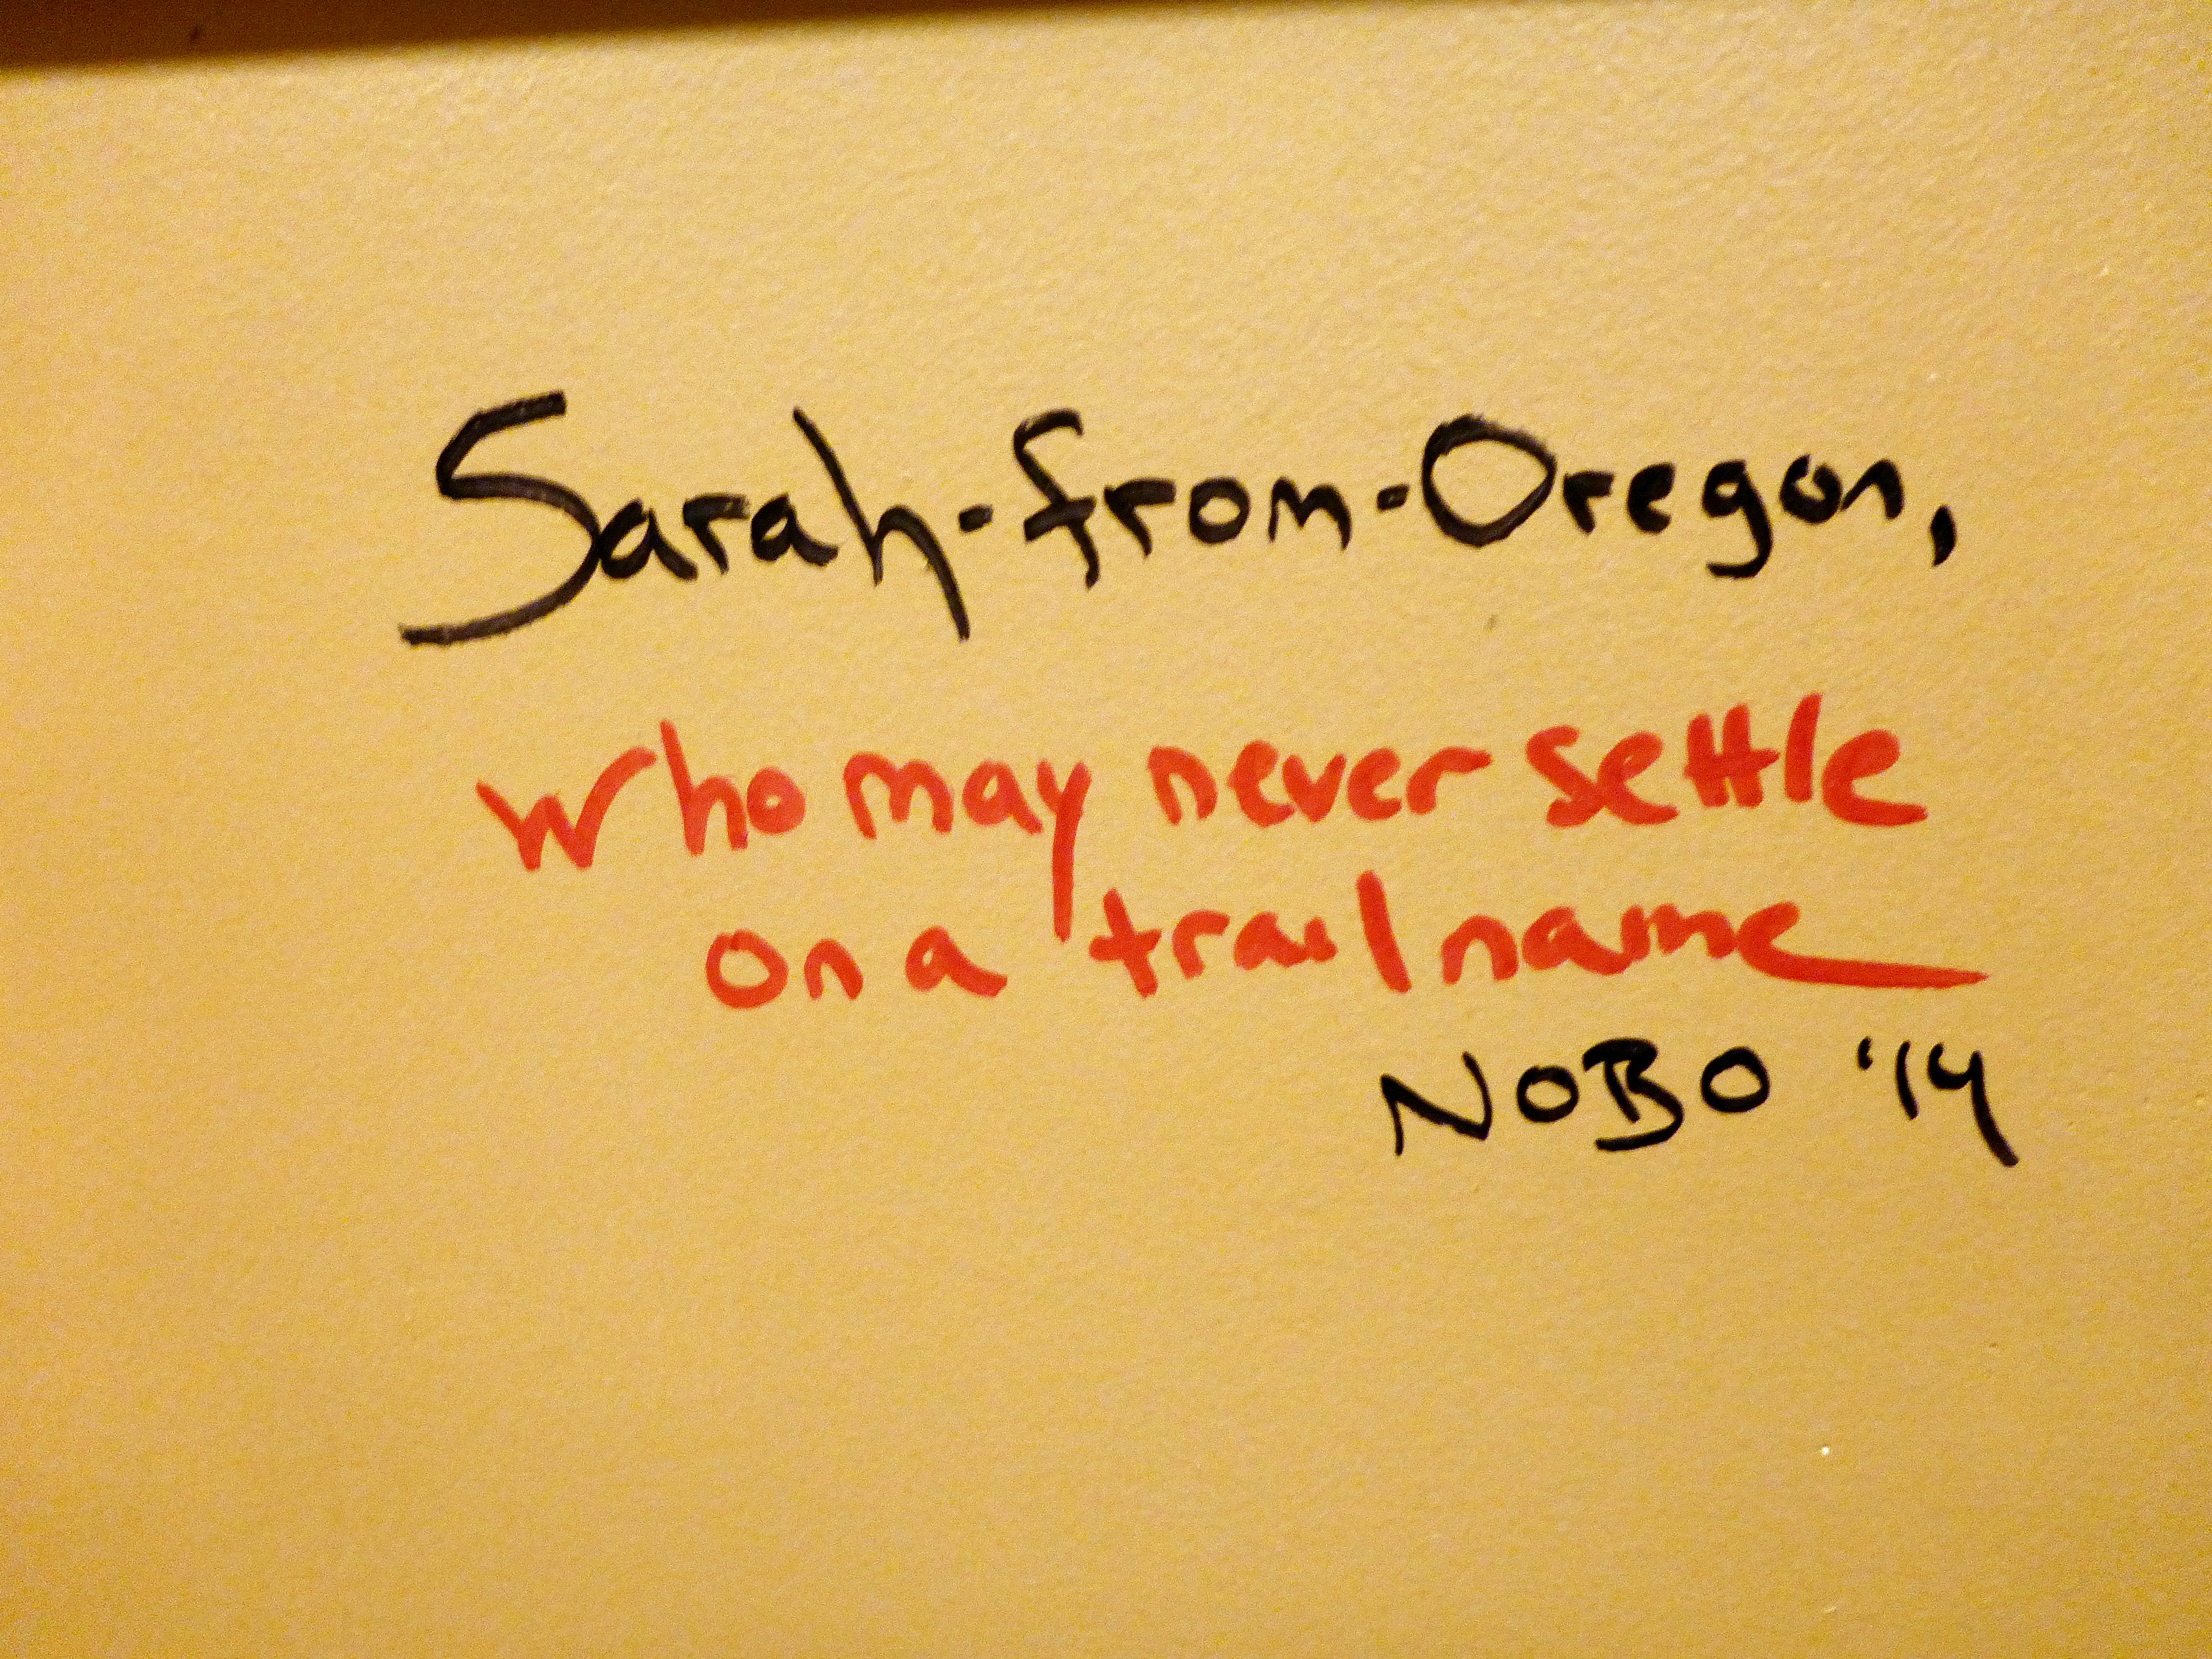 Sarah-from-Oregon,
who may never settle
on a trail name
NOBO '14